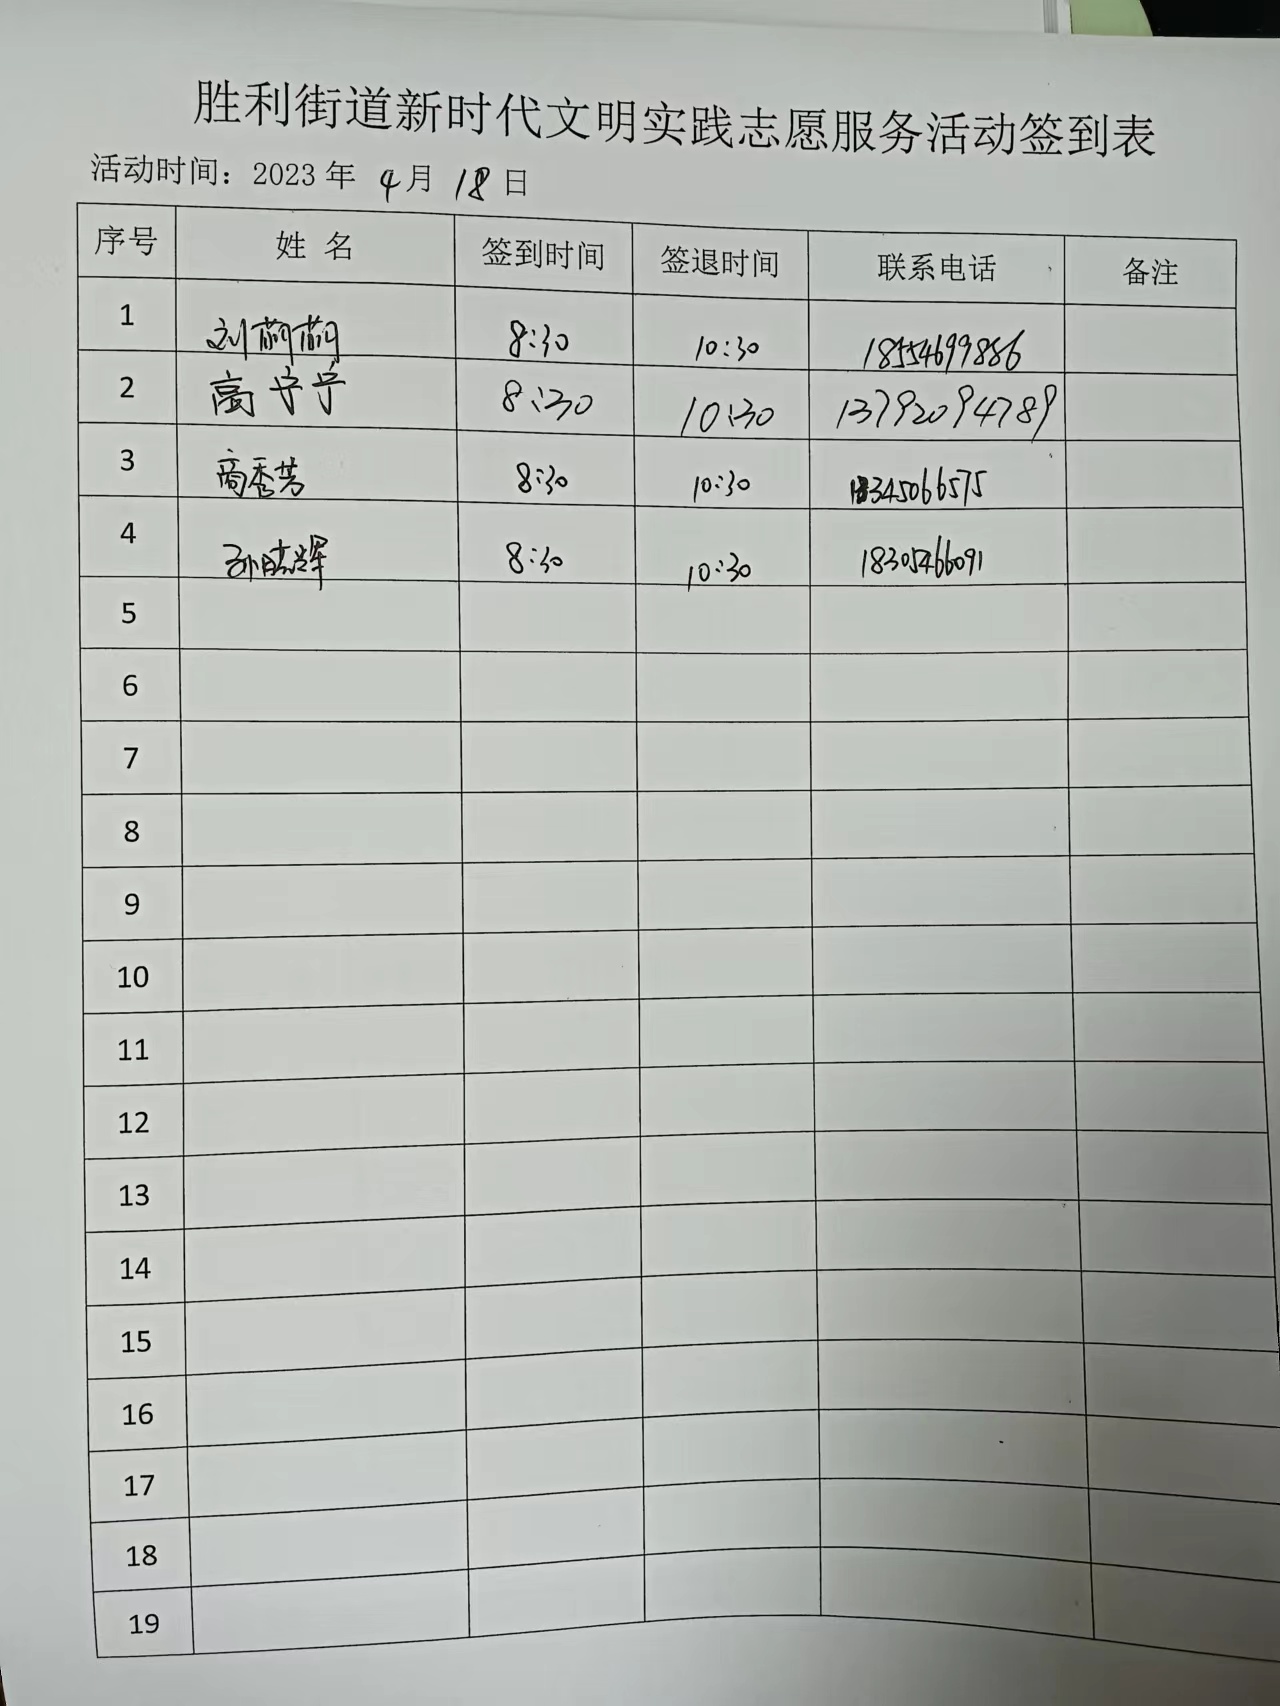 胜利街道新时代文明实践志愿服务活动签到表
活动时间：2023 年 4 月 18 日
序号 姓 名 签到时间 签退时间 联系电话 备注
1 刘 8:30 10:30 18554699886
2 高宁宁 8:30 10:30 13792094789
3 高秀芳 8:30 10:30 18345066575
4 孙晓辉 8:30 10:30 18305466091
5
6
7
8
9
10
11
12
13
14
15
16
17
18
19